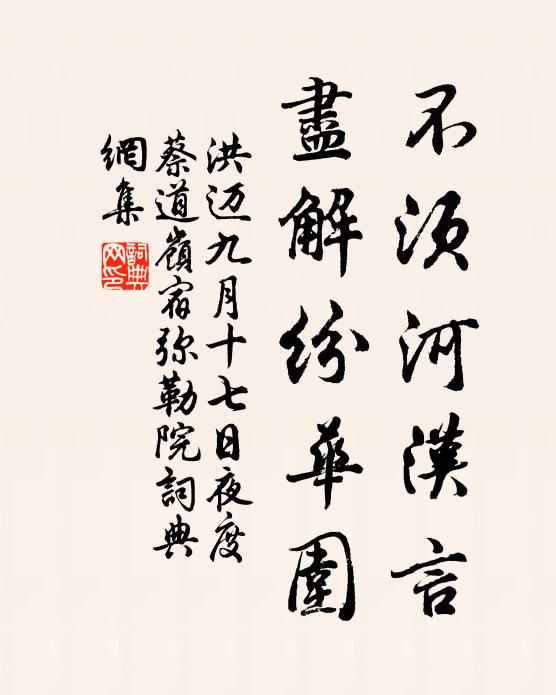 不須河漢言
盡解紛華圍
洪迈九月十七日夜度
蔡道嶺宿弥勒院詞典
網集
詞典
网印